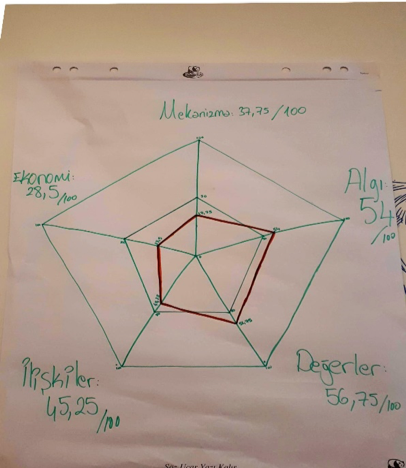 Mekanizma: 37,75/100
Ekonomi:
28,5/100
Algı:
54
/100
İlişkiler:
45,25
/100
Değerler:
56,75/100